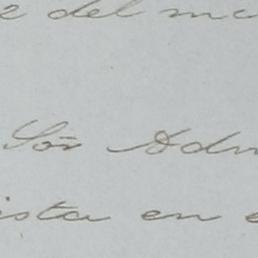 e del m
Sor Adm
ista en e